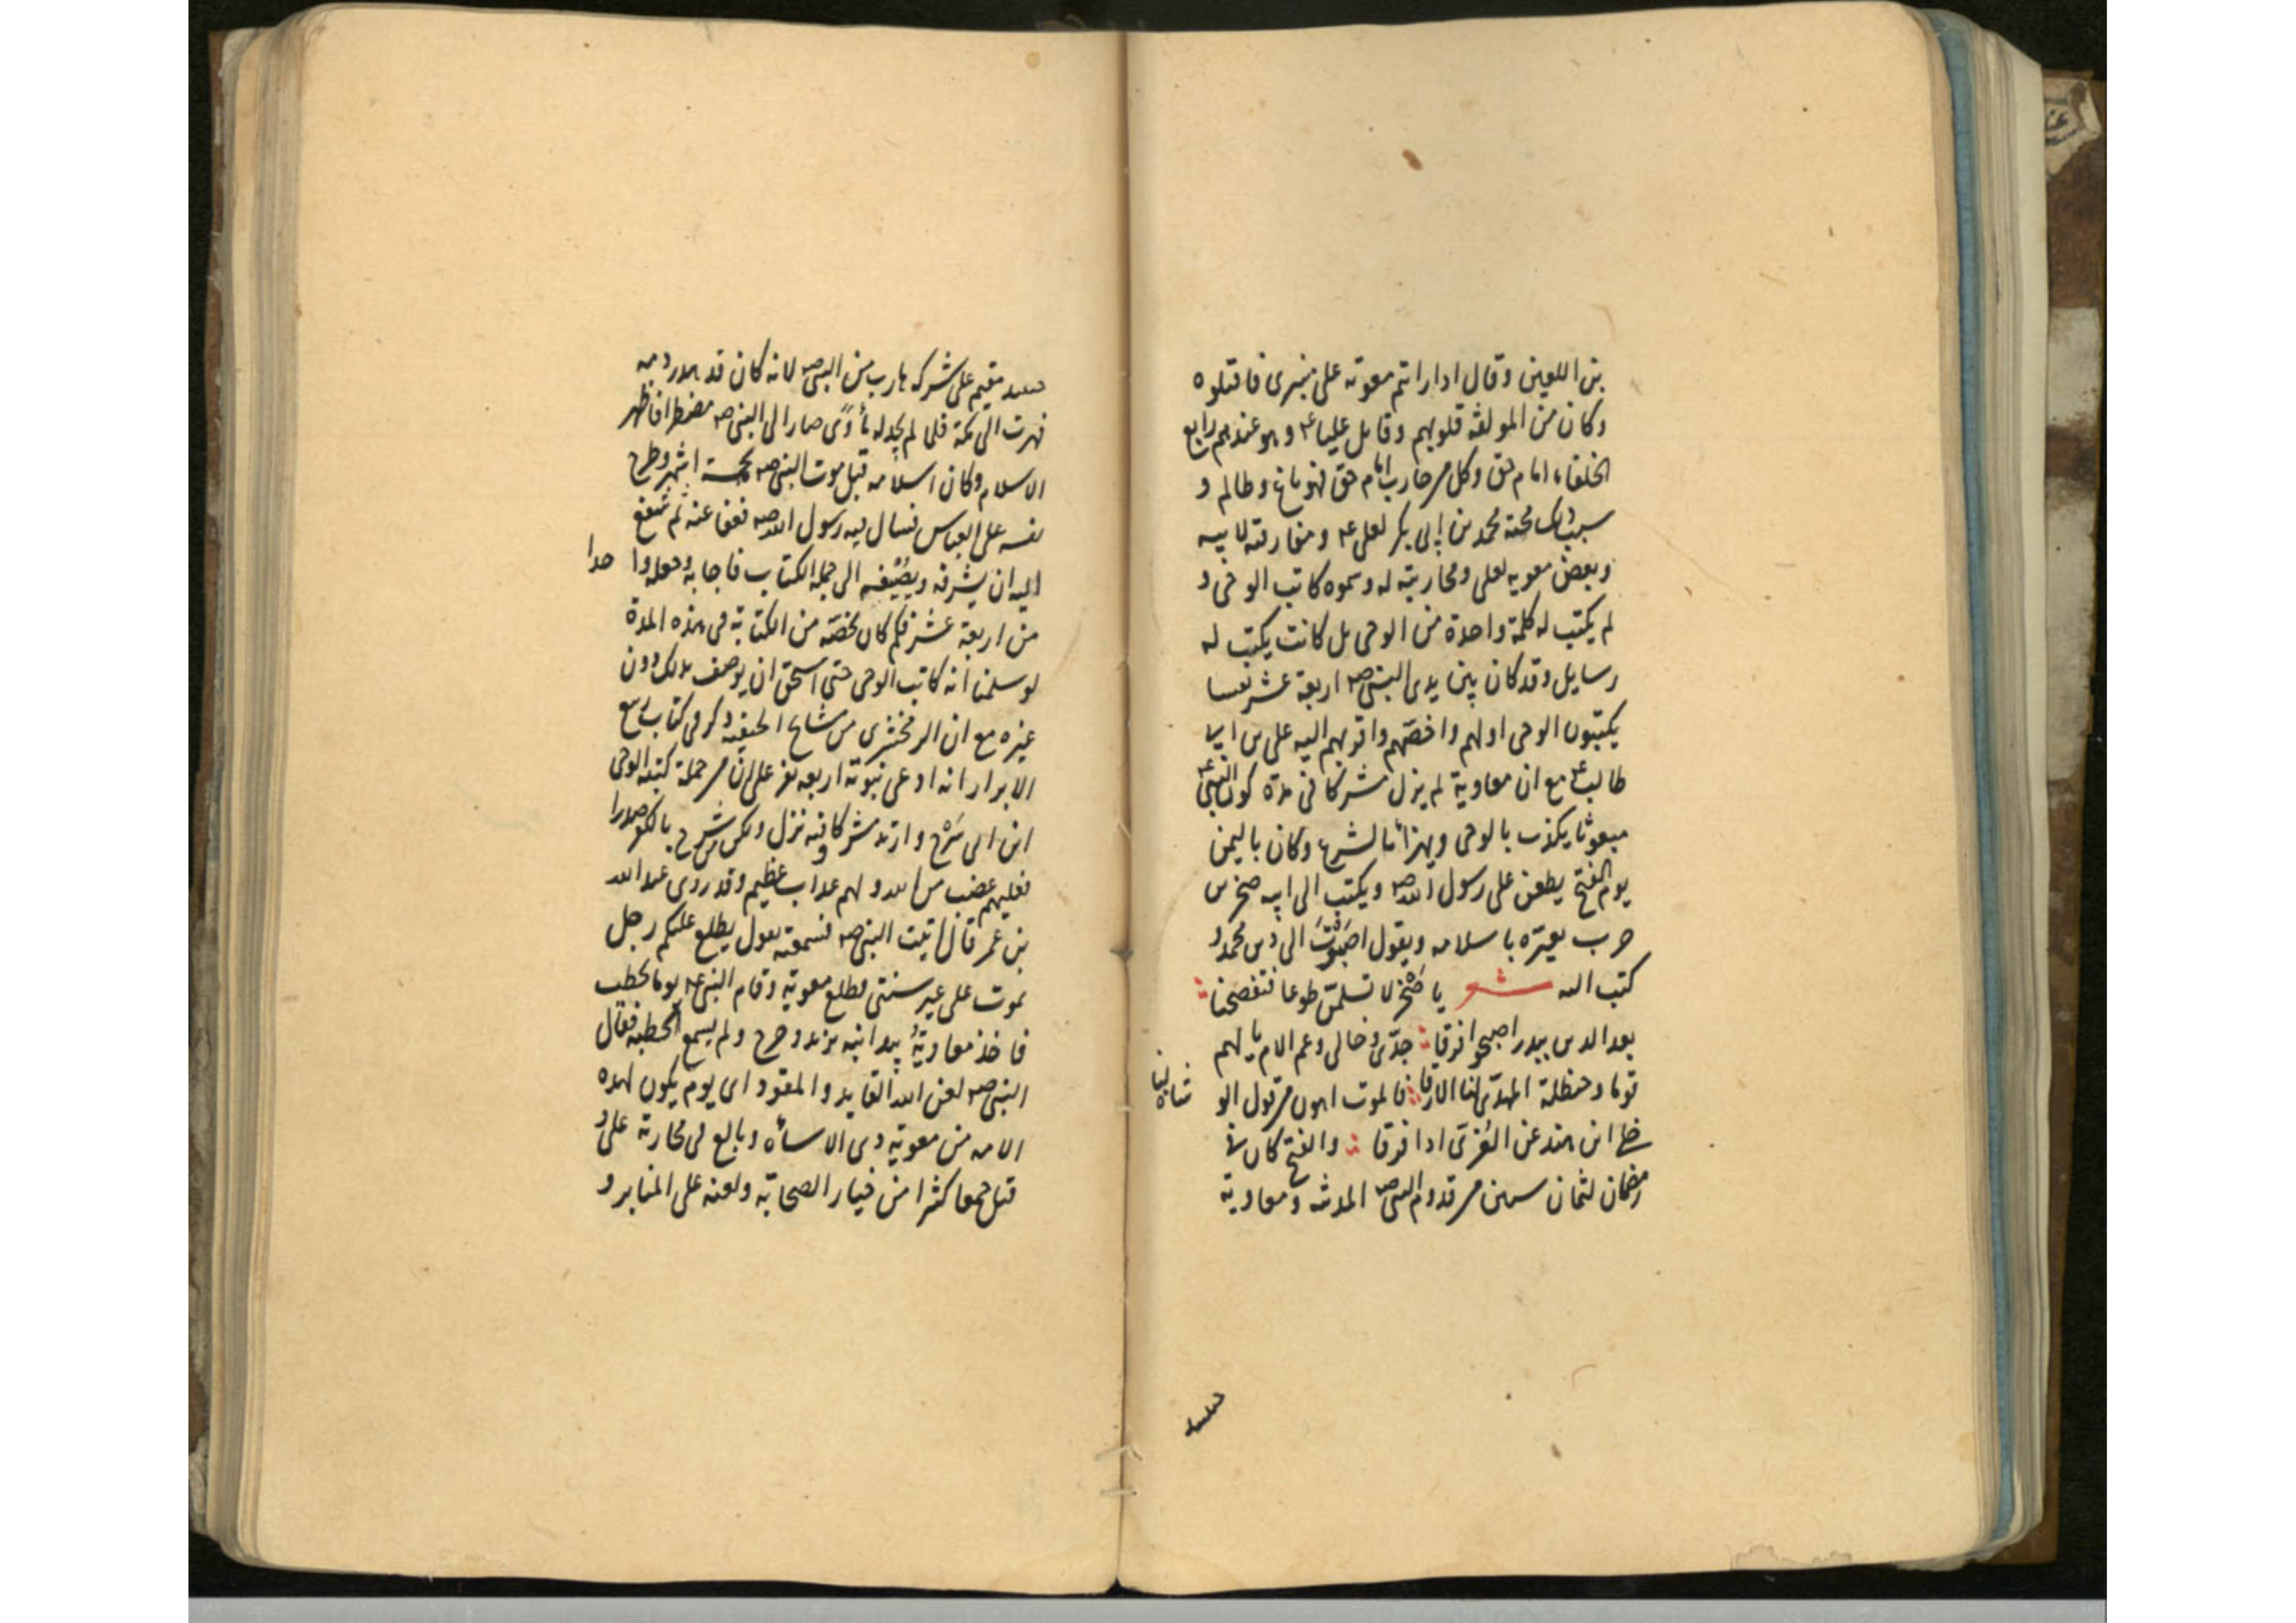 بن اللعين وقال اذا رايتم معوية على منبرى فاقتلوه
وكان من المولفة قلوبهم وقاتل عليا ع‍ وهو عندهم رابع
الخلفاء امام حق وكل من حارب امام حق فهو باغ وظالم و
سبب ذلك محبة محمد بن ابى بكر لعلى ع‍ ومفارقته لابيه
وبغض معويه لعلى ومحاربته له وسموه كاتب الوحى و
لم يكتب له كلمة واحدة من الوحى بل كانت يكتب له
رسايل وقد كان بين يدى النبى صه اربعة عشر نفسا
يكتبون الوحى اولهم واخصهم واقربهم اليه على بن ابى
طالب ع‍ مع ان معاوية لم يزل مشركا فى مدة كون النبى ع‍
مبعوثا يكذب بالوحى ويهزأ بالشرع وكان باليمن
يوم الفتح يطعن على رسول الله صه ويكتب الى ابيه صخر بن
حرب يعيّره باسلامه ويقول اصَبَوْتَ الى دين محمد و
كتب اليه شعر يا صَخْر لا تسلمن طوعا فتفضحنا
بعد الذين ببدر اصبحوا فرقا جدّى وخالى وعم الام يا لهم
قوما وحنظلة المهدّى لنا الارقا فالموت اهون من قول الو
شاة لنا
خلى ابن هند عن العُزّى اذا فرقا والفتح كان فى
رمضان لثمان سنين من قدوم النبى صه المدينة ومعاوية
حينئذ
حينئذ مقيم على شركه هارب من النبى صه لانه كان قد هدر دمه
فهرب الى مكة فلما لم يجد له مأوًى صار الى النبى صه مضطرا فاظهر
الاسلام وكان اسلامه قبل موت النبى صه بخمسة اشهر وطرح
نفسه على العباس فسال فيه رسول الله صه فعفا عنه ثم شفع
اليه ان يشرفه ويضيفه الى جملة الكتاب فاجابه وجعله وا حدا
من اربعة عشر فكم كان يخصّه من الكتابة فى هذه المدة
لو سلمنا انه كاتب الوحى حتى استحق ان يوصف بذلك دون
غيره مع ان الزمخشرى من مشايخ الحنفية ذكر فى كتاب ربيع
الابرار انه ادعى نبوته اربعه نفر على ان من جملة كتبة الوحى
ابن ابى سَرْح وارتد مشركا وفيه نزل ولكن من شرح بالكفر صدرا
فعليهم غضب من الله ولهم عذاب عظيم وقد روى عبد الله
بن عمر قال اتيت النبى صه فسمعته يقول يطلع عليكم رجل
يموت على غير سنتى فطلع معوية وقام النبى ع‍ يوما يخطب
فاخذ معاويةُ بيد ابنه يزيد وخرج ولم يسمع الخطبة فقال
النبى صه لعن الله القايد والمقود اى يوم يكون لهذه
الامه من معوية ذى الاسأة وبالغ فى محاربة على و
قتل جمعا كثيرا من خيار الصحابة ولعنه على المنابر و